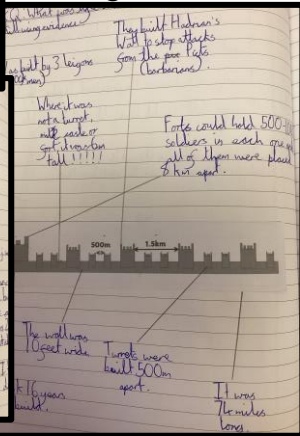 EQ: What was
following evidence
They built Hadrian's
Wall to stop attacks
from the Picts
(barbarians)
was built by 3 legions
men)
Where it was
not a turret,
mile castle or
fort, it was 6m
tall!!!!!
Forts could hold 500-
soldiers in each one and
all of them were placed
8 km apart.
500m
1.5km
The wall was
10 feet wide
Turrets were
built 500m
apart.
k 16 years
build.
It was
74 miles
long.